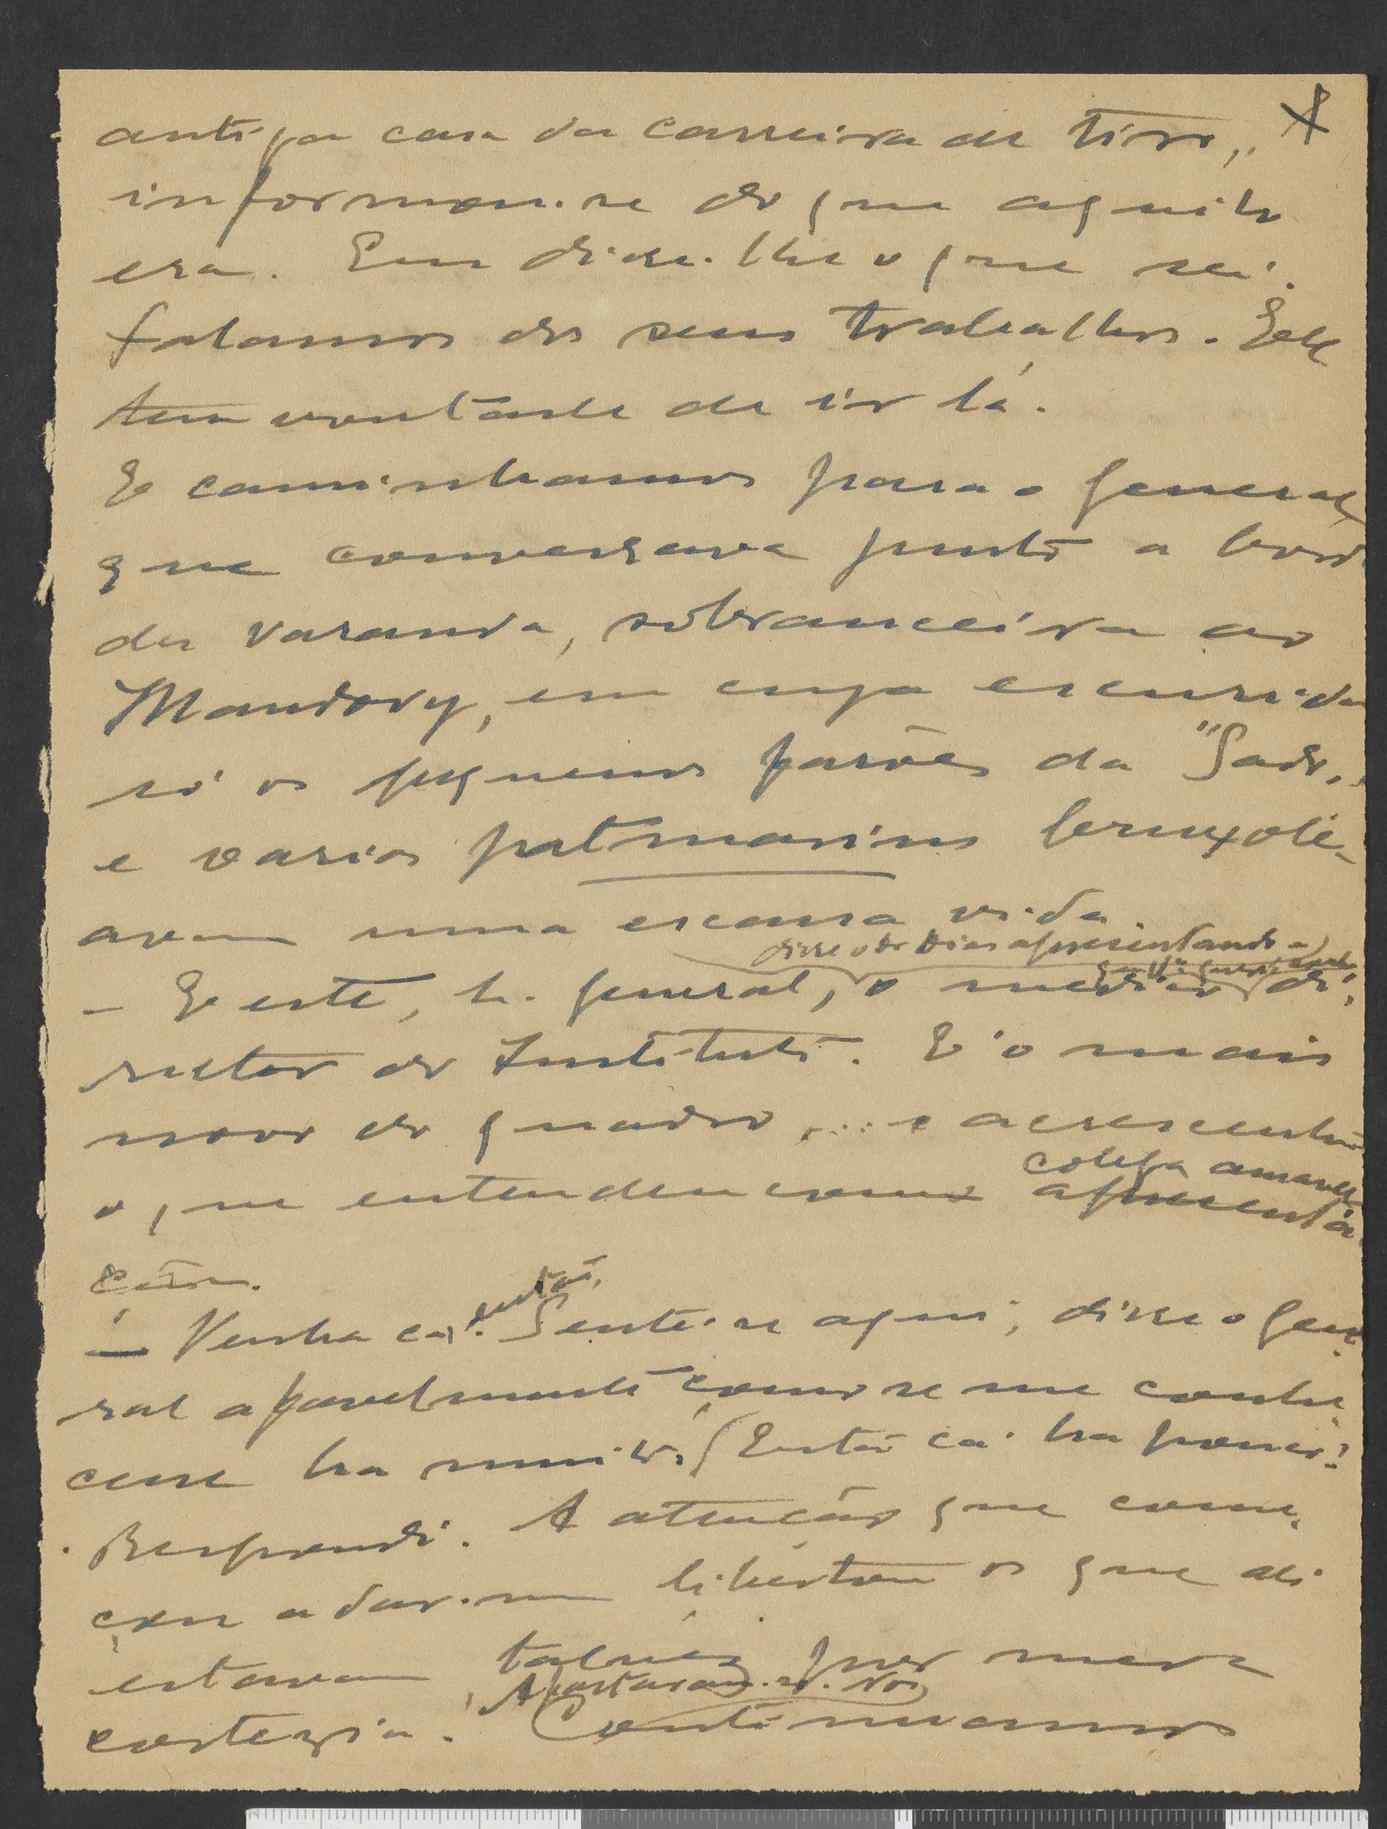 antiga casa da carreira de tiro,
informou-se do que aquilo
era. Eu disse-lhe o que sei.
falamos dos seus trabalhos. Ele
tem vontade de ir lá.
E caminhamos para o general
que conversava junto a bord
da varanda, sobranceira ao
Mandovy, em cuja escurida
só os pequenos faróes da "Gado,
e varios patmarins bruxole-
avam uma escassa vida.
disse o dr Dias apresentando-
- E este, Sr. general, o medico di-
rector do Instituto. E' o mais
novo do quadro, ... e acrescentou
colega amavel
o que entendeu como apresenta
ção.
então.
- Venha cá. Sente-se aqui, disse o gene-
ral afavelmente como se me conhe-
cesse ha muito. Está cá ha pouco?
. Respondi. A atenção que come-
çou a dar-me libertou os que ali
estavam talvez por mera
Afastaram-se. Nós
cortezia. Continuamos